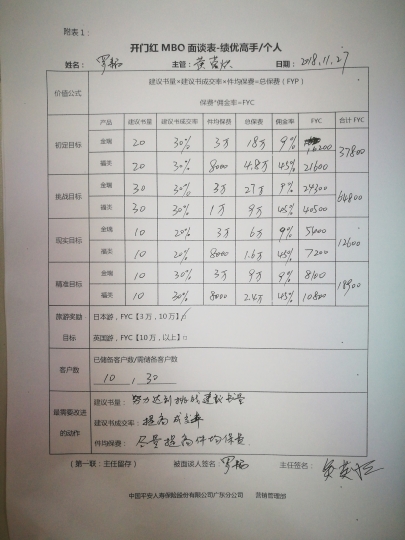 附表1：
开门红 MBO 面谈表-绩优高手/个人
姓名： 主管：黄 日期：2018.11.27
价值公式 建议书量×建议书成交率×件均保费=总保费（FYP）
保费*佣金率=FYC
产品 建议书量 建议书成交率 件均保费 总保费 佣金率 FYC 合计 FYC
初定目标 金瑞 20 30% 3万 18万 9% 16200 37800
福类 20 30% 8000 4.8万 45% 21600
挑战目标 金瑞 30 30% 3万 27万 9% 24300 64800
福类 30 30% 1万 9万 45% 40500
现实目标 金瑞 10 20% 3万 6万 9% 5400 12600
福类 10 20% 8000 1.6万 45% 7200
精准目标 金瑞 10 30% 3万 9万 9% 8100 18900
福类 10 30% 8000 2.4万 45% 10800
旅游奖励 日本游，FYC【3万，10万】☑
目标 英国游，FYC【10万，以上】□
客户数 已储备客户数/需储备客户数
10 , 30
最需要改进的动作 建议书量：努力达到挑战建议书量
建议书成交率：提高成交率
件均保费：尽量提高件均保费
（第一联：主任留存） 被面谈人签名： 主任签名：黄
中国平安人寿保险股份有限公司广东分公司 营销管理部